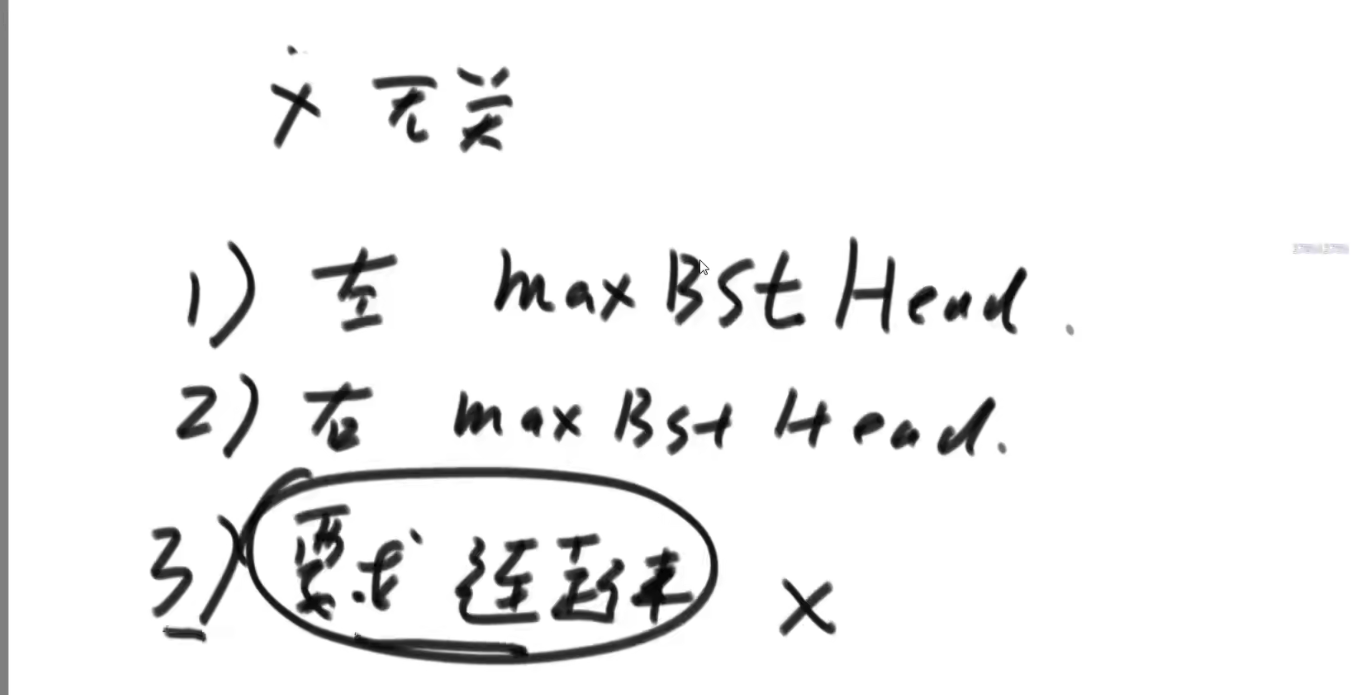 x 无关
1) 左 maxBSt Head.
2) 右 maxBst Head.
3) 要求 连起来 x